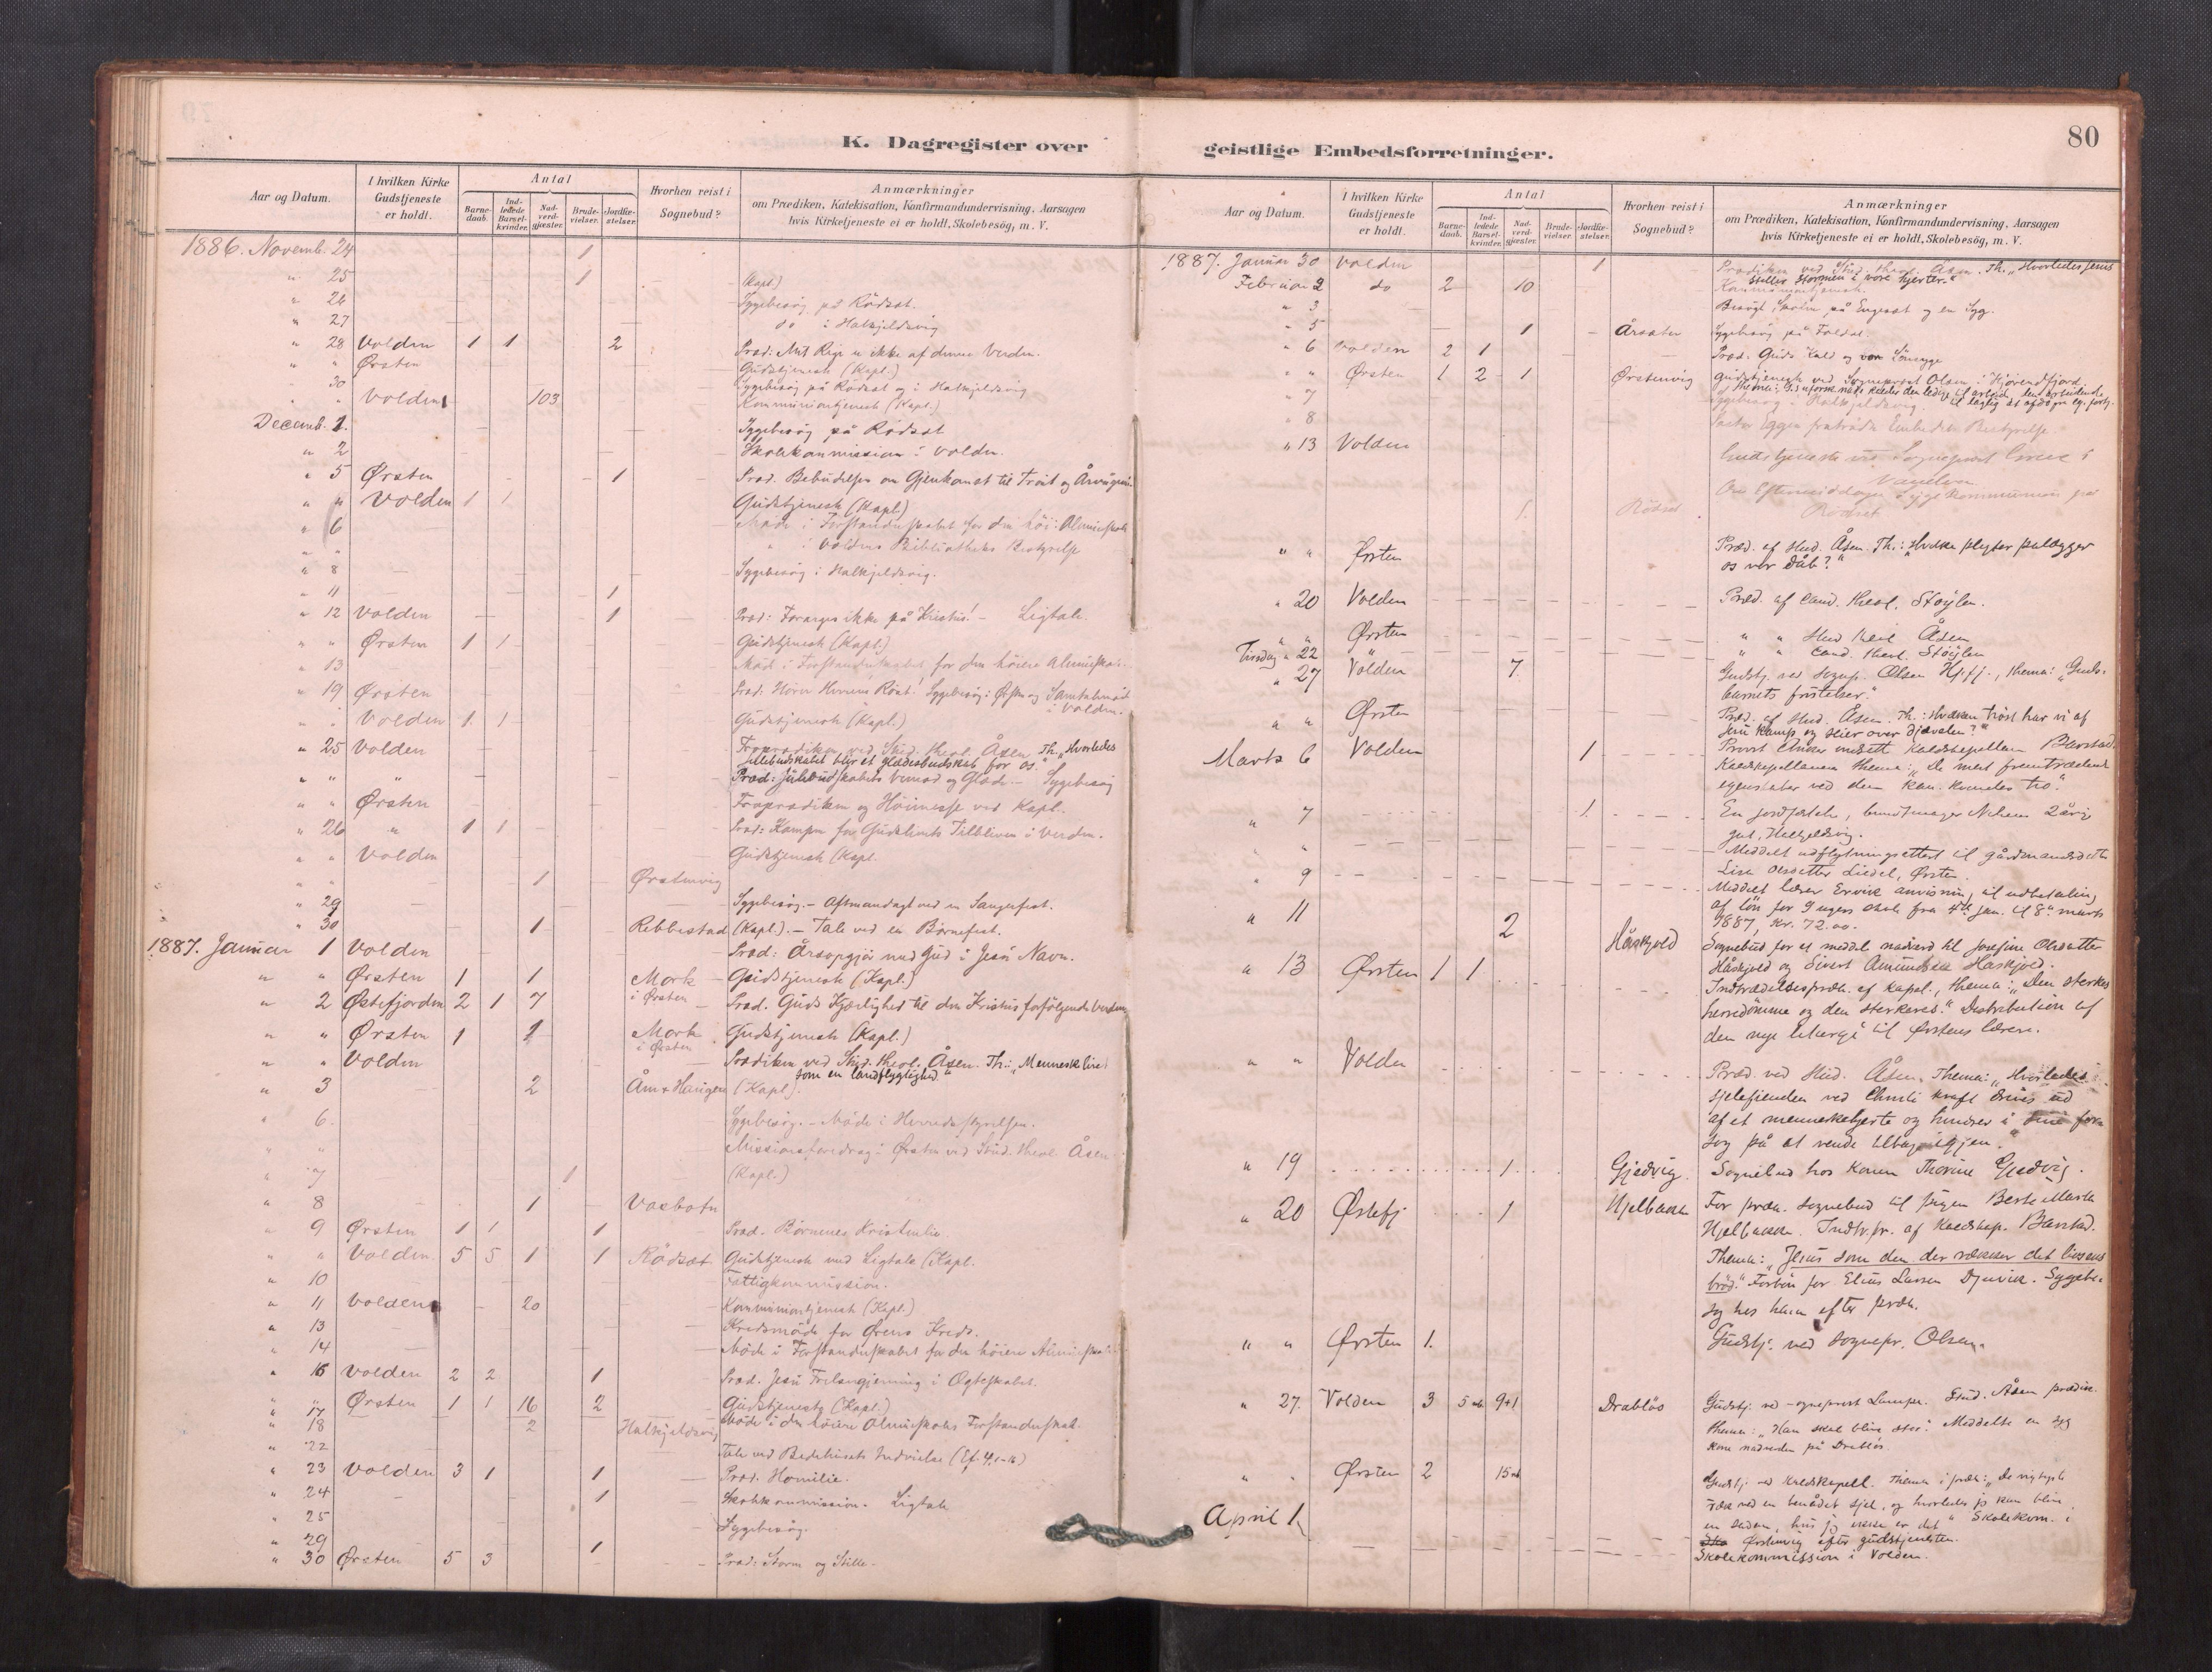 K. Dagregister over
Aar og Datum. I hvilken Kirke Gudstjeneste er holdt. Antal Barnedaab. Indledede Barselkvinder. Nadverdgjæster. Brudevielser. Jordfæstelser. Hvorhen reist i Sognebud? Anmærkninger om Prædiken, Katekisation, Konfirmandundervisning, Aarsagen hvis Kirketjeneste ei er holdt, Skolebesög, m. V.
1886. Novemb. 24 1
" 25 1 (Kapl.)
" 26 Sygebesög på Rödsæt.
" 27 do i Halkjeldsvig
" 28 Volden 1 1 2 Præd: Mit Rige er ikke af denne Verden.
" " Ørsten Gudstjeneste (Kapl.)
" 30 Sygebesög på Rödsæt og i Halkjeldsvig
" " Volden 103 Kommuniontjeneste (Kapl.)
Decemb. 1. Sygebesög på Rödsæt
" 2 Skolekommission i Volden.
" 5 Ørsten 1 Præd. Bebudelsen om Gjenkomst til Tröst og Årvågen
" " Volden 1 1 Gudstjeneste (Kapl.)
" 6 Möde i Forstanderskabet for den höi: Almueskole
" " i Voldens Bibliotheks Bestyrelse
" 8 Sygebesög i Halkjeldsvig.
" 11 1
" 12 Volden 1 Præd: Forarges ikke på Kristus! - Ligtale.
" " Ørsten 1 1 Gudstjeneste (Kapl.)
" 13 Möde i Forstanderskabet for den höiere Almueskole
" 19 Ørsten Præd: Hören Herrens Röst! Sygebesög i Ørsten og Samtalemöde i Volden.
" " Volden 1 1 Gudstjeneste (Kapl.)
" 25 Volden Froprædiken ved Stud. theol. Åsen. Th. „Hvorledes
julebudskabet blir et glædesbudskab for os."
" " " Præd: Julebudskabets og Glæde. - Sygebesög
" " Ørsten Froprædiken og Höimesse ved Kapl.
" 26 " 1 1 Præd: Kampen for Gudslivets Tilbliven i Verden.
" " Volden Gudstjeneste (Kapl.
" " 1 Ørstenvig
" 29 Sygebesög. - Aftenandagt ved en Sangerfest.
" 30 1 Rebbestad (Kapl.). - Tale ved en Börnefest.
1887. Januar 1 Volden Præd: Årsopgjör med Gud i Jesu Navn.
" " Ørsten 1 1 Mork i Ørsten Gudstjeneste (Kapl.)
" 2 Østefjorden 2 1 7 Præd. Guds Kjærlighed til den Kristus forfölgende Verden
" " Ørsten 1 1 Mork i Ørsten Gudstjeneste (Kapl.)
" " Volden Prædiken ved Stud. theol. Åsen. Th.: „Menneskelivet
som en landflygtighed"
" 3 2 Åm & Haugen (Kapl.)
" 6. Sygebesög. - Möde i Herredsstyrelsen.
" " Missionsforedrag i Ørsten ved Stud. theol. Åsen
" 7 1 (Kapl.)
" 8 1 Vasbotn
" 9 Ørsten 1 1 1 Præd. Börnenes Kristenliv
" " Volden. 5 5 1 1 Rödsæt Gudstjeneste med Ligtale (Kapl.
" 10 Fattigkommission.
" 11 Volden 20 Kommuniontjeneste (Kapl.)
" 13 Kredsmöde for Ørens Kreds.
" 14 Möde i Forstanderskabet for den höiere Almueskole
" 16 Volden 2 2 1 Præd. Jesu Frelsergjerning i Ægteskabet.
" " Ørsten 1 1 16 2 Gudstjeneste (Kapl.)
" 17 Möde i den höiere Almueskoles Forstanderskab.
" 18 2 Halkjeldsvig
" 22 Tale ved Bedehusets Indvielse (Ef. 4, 1-16)
" 23 Volden 3 1 1 Præd. Homilie.
" 24 1 Skolekommission. Ligtale
" 25 Sygebesög.
" 29 1
" 30 Ørsten 5 3 Præd: Storm og Stille -
80
geistlige Embedsforretninger.
Aar og Datum. I hvilken Kirke Gudstjeneste er holdt. Antal Barnedaab. Indledede Barselkvinder. Nadverdgjæster. Brudevielser. Jordfæstelser. Hvorhen reist i Sognebud? Anmærkninger om Prædiken, Katekisation, Konfirmandundervisning, Aarsagen hvis Kirketjeneste ei er holdt, Skolebesög, m. V.
1887. Januar 30 Volden 1 Prædiken ved Stud. theol. Åsen. Th. „Hvorledes Jesus
stiller stormen i vore hjerter."
Februar 2 do 2 10 Kommuniontjeneste.
" 3 Besögt Skolen på Engeset og en Syg.
" 5 1 Årsæter Sygebesög på Foldal.
" 6 Volden 2 1 Præd. Guds Kald og vor
" " Ørsten 1 2 1 Ørstenvig Gudstjeneste ved Sogneprest Olsen i Hjörendfjord.
" 7 Sygebesög i Halkjeldsvig.
" 8 Pastor Eggen fratråde Embedets Bestyrelse.
" 13 Volden Gudstjeneste ved Sogneprest i
Vanelven
1. Rödset Om Eftermiddagen sygekommunion på
Rödset
" " Ørsten Præd. af stud. Åsen. Th.: „Hvilke pligter pålægger
os vor dåb?"
" 20 Volden Præd. af Cand. theol. Stöylen.
" " Ørsten " " Stud theol Åsen
Tirsdag " 22 " " " Cand. theol. Stöylen
" 27 Volden 7 Gudstj. ved Sognep. Olsen Hj.fj., thema: „Guds-
barnets fristelser."
" " Ørsten Præd. af stud. Åsen. Th.: „Hvilken tröst har vi af
Jesu kamp og seier over djævelen?"
Marts 6 Volden 1 Provst indsatte Kaldskapellan Barstad.
Kaldskapellanens thema: „De mest fremtrædende
egenskaber ved den kan. kvindes tro."
" 7 1 En jordfæstelse, 2årig
gut, Halkjeldsvig.
" " Meddelt udflytningsattest til gårdmandsdatter
Lisa Olsdatter Liedel, Ørsten
" 9 Meddelt lærer Ervik anvisning til udbetaling
af lön for 9 ugers skole fra 4de Jan. til 8de marts
1887, Kr. 72.00.
" 11 2 Håskjold Sognebud for at meddele nadverd til Josefine Olsdatter
Håskjold og Sivert Amundsen Håskjold.
" 13 Ørsten 1 1 Indtrædelsespræk. af kapel., thema: „Den sterkes
herredömme og den sterkeres." Distribution af
den nye liturgi til Ørstens lærere.
" " Volden Præd. ved Stud. Åsen. Thema: „Hvorledes
sjelefienden ved Christi kraft drives ud
af et menneskehjerte og hindres i sine forsög på at vende tilbage igjen."
" 19 1 Gjedvig. Sognebud hos konen Thorine Gjedvig.
" 20 Østefj 1 Hjelbakke For præk. sognebud til pigen Berte Marta
Hjelbakke. Indtr.pr. af Kaldskap. Barstad.
Thema: „Jesus som den der rækker det livsens
bröd." Forbön for Elias Larsen Djuvik. Sygebe-
sög hos ham efter præk.
" " Ørsten 1. Gudstj. ved sognepr. Olsen.
" 27. Volden 3 5 9+1 Drablös Gudstj. ved sogneprest Lampe. Stud. Åsen prædike.
thema: „Han skal blive stor." Meddelte en syg
kone nadverden på Drablös.
" " Ørsten 2 15 Gudstj. ved Kaldskapell. Thema i præk: „De vigtigste
træk ved en benådet sjel, og hvorledes jeg kan blive
en sådan, hvis jeg ikke er det" Skolekom. i
Ørstenvig efter gudstjenesten.
April 1. Skolekommission i Volden.